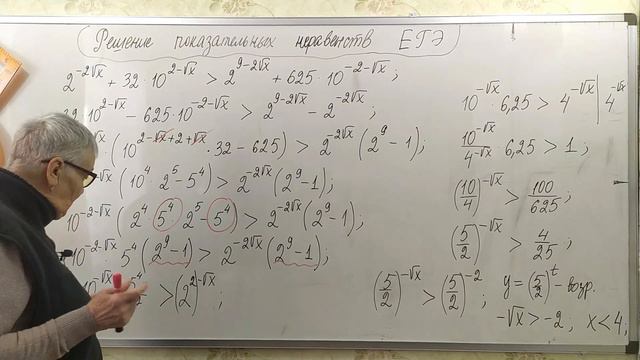 Решение показательных неравенств ЕГЭ
2^{-2√x} + 32·10^{2-√x} > 2^{9-2√x} + 625·10^{-2-√x};
·10^{2-√x} - 625·10^{-2-√x} > 2^{9-2√x} - 2^{-2√x};
(10^{2-√x+2+√x}·32 - 625) > 2^{-2√x}(2^9 - 1);
(10^4·2^5 - 5^4) > 2^{-2√x}(2^9-1);
10^{-2-√x}(2^4·5^4·2^5 - 5^4) > 2^{-2√x}(2^9-1);
10^{-2-√x}·5^4(2^9-1) > 2^{-2√x}(2^9-1);
> (2^2)^{-√x};
10^{-√x}·6,25 > 4^{-√x} | 4^{-√x}
10^{-√x}/4^{-√x}·6,25 > 1;
(10/4)^{-√x} > 100/625;
(5/2)^{-√x} > 4/25;
(5/2)^{-√x} > (5/2)^{-2}; y=(5/2)^t - возр.
-√x > -2; x<4;